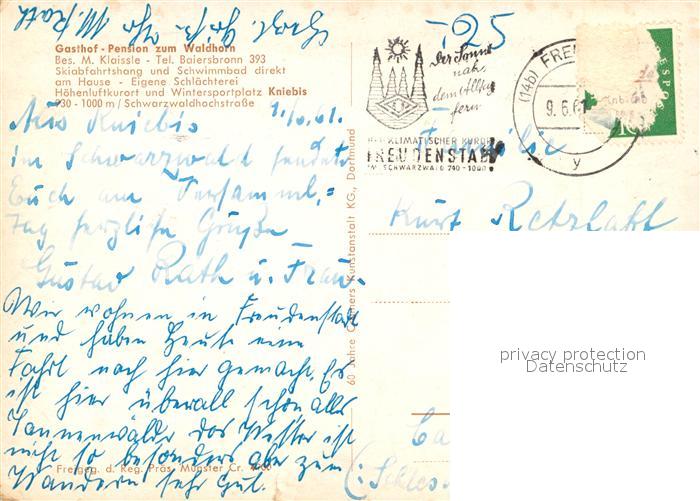 M. Rath
-,25
Gasthof - Pension zum Waldhorn
Bes. M. Klaissle - Tel. Baiersbronn 393
Skiabfahrtshang und Schwimmbad direkt
am Hause - Eigene Schlächterei
Höhenluftkurort und Wintersportplatz Kniebis
930 - 1000 m / Schwarzwaldhochstraße
Aus Kniebis
im Schwarzwald sendet
Euch am Versamml.=
Tag herzliche Grüße
Gustav Rath u. Frau.
Wir wohnen in Freudenstadt
und haben Heute eine
Fahrt nach hier gemacht. Es
ist hier überall schön alles
Tannenwälder das Wetter ist
nicht so besonders aber zum
Wandern sehr gut.
Freigeg. d. Reg. Präs. Münster Cr.
60 Jahre Cramers Kunstanstalt KG., Dortmund
Der Sonne
nah,
dem Alltag
fern
HEILKLIMATISCHER KURORT
FREUDENSTADT!
IM SCHWARZWALD 740 - 1000 m
(14b) FREU
9.6.61
y
Familie
Kurt Retzlaff
(Schles
privacy protection
Datenschutz